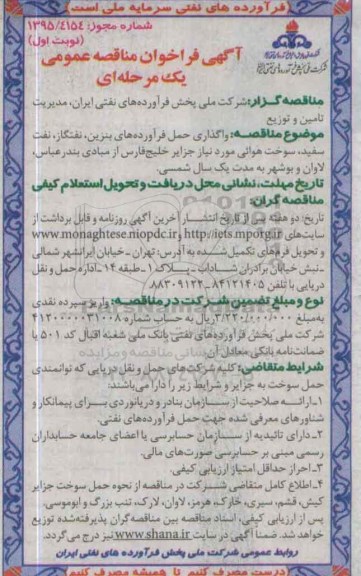 فرآورده های نفتی سرمایه ملی است
شماره مجوز: ۱۳۹۵/۴۱۵۴
(نوبت اول)
آگهی فراخوان مناقصه عمومی
یک مرحله‌ای
مناقصه‌گزار: شرکت ملی پخش فرآورده‌های نفتی ایران، مدیریت
تامین و توزیع
موضوع مناقصه: واگذاری حمل فرآورده‌های بنزین، نفتگاز، نفت
سفید، سوخت هوائی مورد نیاز جزایر خلیج‌فارس از مبادی بندرعباس،
لاوان و بوشهر به مدت یک سال شمسی.
تاریخ مهلت، نشانی محل دریافت و تحویل استعلام کیفی
مناقصه گران:
تاریخ: دو هفته پس از تاریخ انتشار آخرین آگهی روزنامه و قابل برداشت از
سایت‌های http://iets.mporg.ir و www.monaghtese.niopdc.ir
و تحویل فرم‌های تکمیل‌شده به آدرس: تهران - خیابان ایرانشهر شمالی
-نبش خیابان برادران شاداب - پلاک ۱ -طبقه ۱۴ -اداره حمل و نقل
دریایی با تلفن ۸۴۱۲۱۴۰۵ - ۸۸۳۰۹۱۲۲
نوع و مبلغ تضمین شرکت در مناقصه: واریز سپرده نقدی
شرکت ملی پخش فرآورده‌های نفتی بانک ملی شعبه اقبال کد ۵۰۱ یا
ضمانت‌نامه بانکی معادل آن
شرایط متقاضی: کلیه شرکت‌های حمل و نقل دریایی که توانمندی
حمل سوخت به جزایر و شرایط زیر را دارا می‌باشند:
۱-ارائه صلاحیت از سازمان بنادر و دریانوردی برای پیمانکار و
شناورهای معرفی شده جهت حمل فرآورده‌های نفتی.
۲-دارای تائیدیه از سازمان حسابرسی یا اعضای جامعه حسابداران
رسمی مبنی بر حسابرسی صورت‌های مالی.
۳-احراز حداقل امتیاز ارزیابی کیفی.
۴-اطلاع کامل متقاضی شرکت در مناقصه از نحوه حمل سوخت جزایر
کیش، قشم، سیری، خارک، هرمز، لاوان، لارک، تنب بزرگ و ابوموسی.
پس از ارزیابی کیفی، اسناد مناقصه بین مناقصه‌گران پذیرفته‌شده توزیع
خواهد شد. ضمناً آگهی در سایت www.shana.ir نیز درج می‌گردد.
روابط عمومی شرکت ملی پخش فرآورده های نفتی ایران
درست مصرف کنیم تا همیشه مصرف کنیم